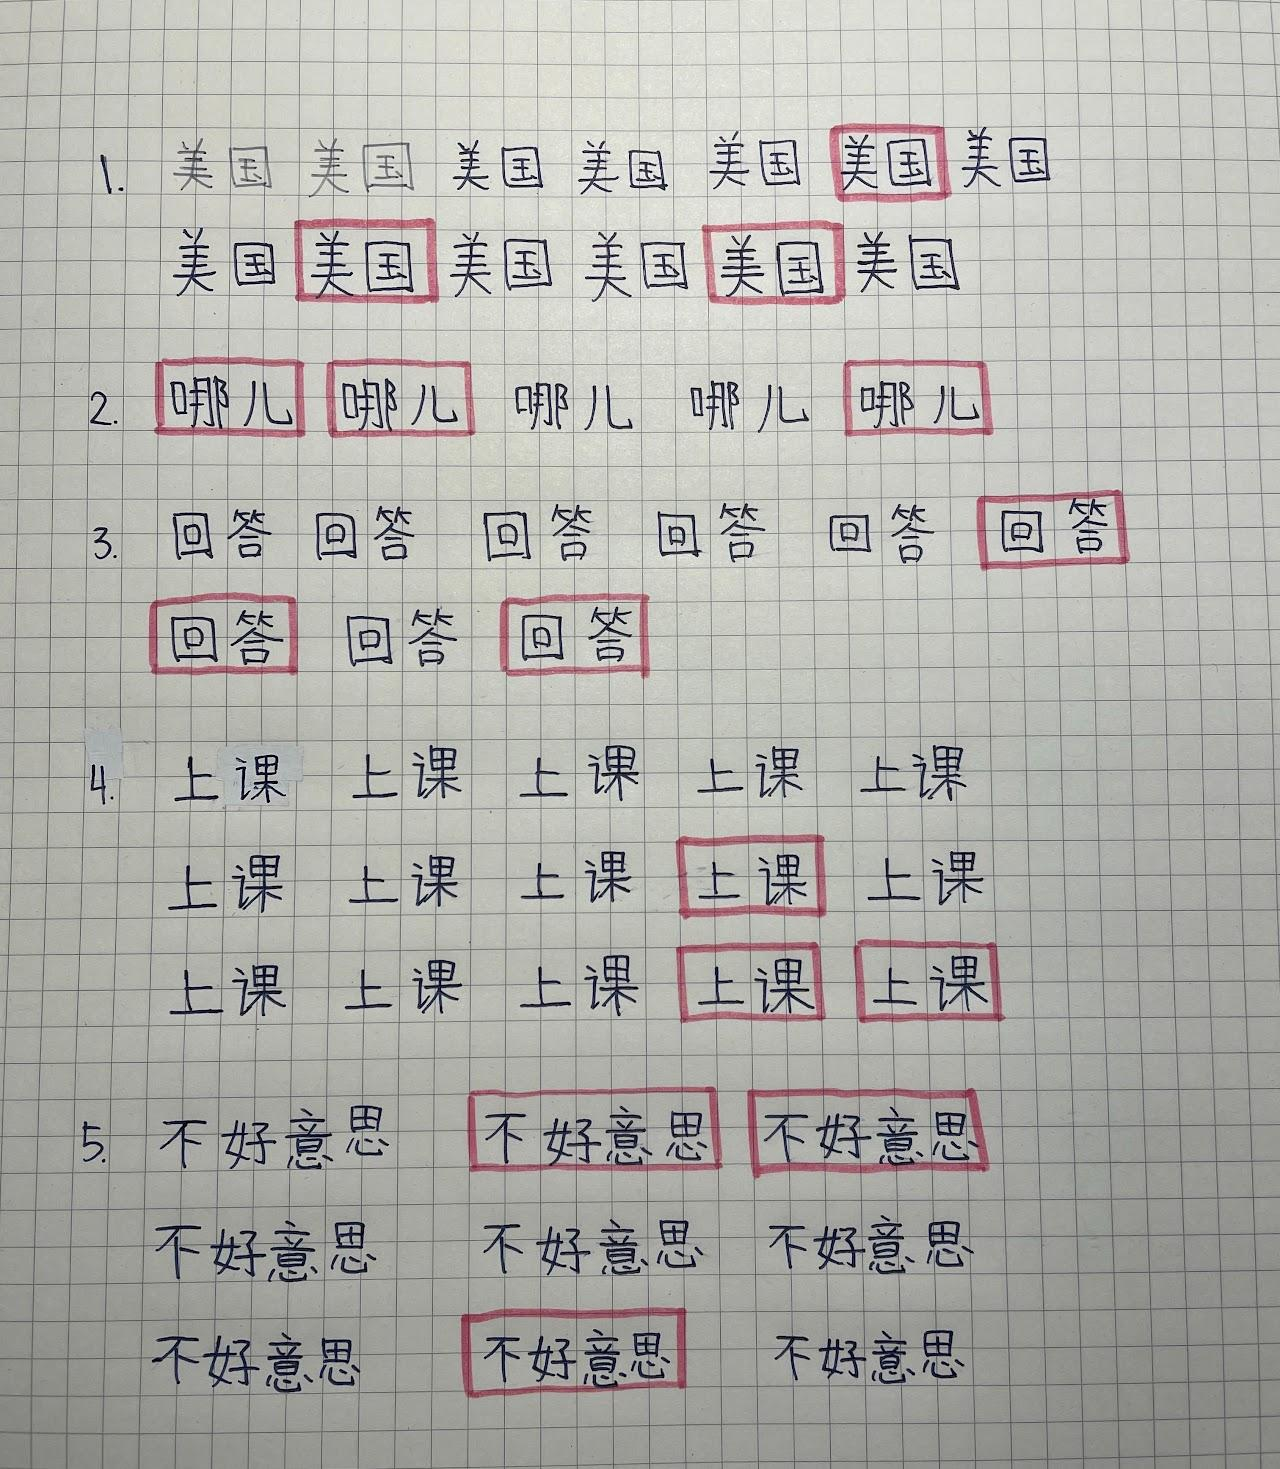 1. 美国 美国 美国 美国 美国 美国 美国
美国 美国 美国 美国 美国 美国
2. 哪儿 哪儿 哪儿 哪儿 哪儿
3. 回答 回答 回答 回答 回答 回答
回答 回答 回答
4. 上课 上课 上课 上课 上课
上课 上课 上课 上课 上课
上课 上课 上课 上课 上课
5. 不好意思 不好意思 不好意思
不好意思 不好意思 不好意思
不好意思 不好意思 不好意思